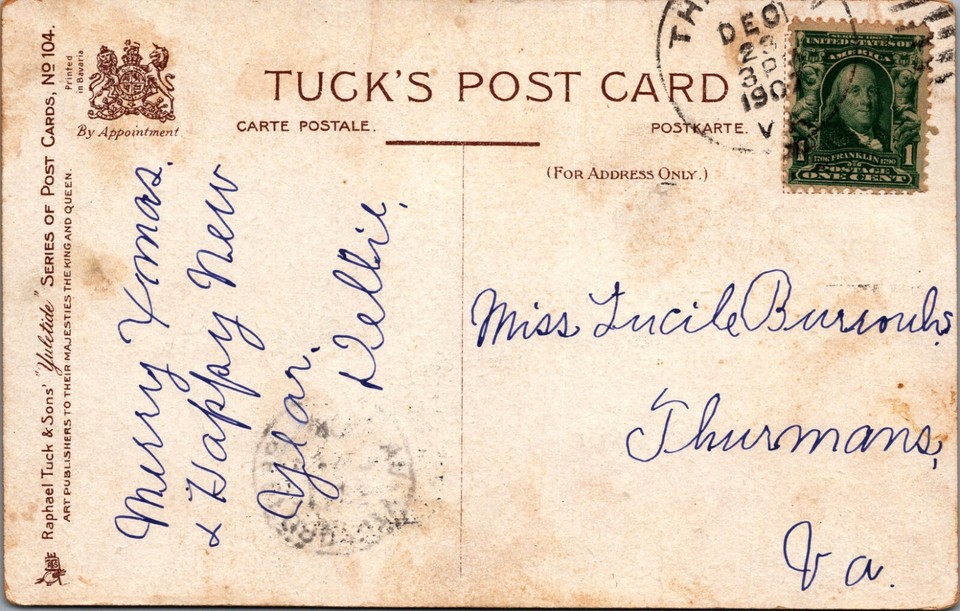 Raphael Tuck & Sons' "Yuletide" Series of Post Cards, No 104.
ART PUBLISHERS TO THEIR MAJESTIES THE KING AND QUEEN.
Printed
in Bavaria
By Appointment
TUCK'S POST CARD
CARTE POSTALE.
POSTKARTE.
(FOR ADDRESS ONLY.)
DEC
23
3 P
190
SERIES 1902
UNITED STATES OF
AMERICA
1706 FRANKLIN 1790
POSTAGE
1 ONE CENT 1
Merry Xmas.
& Happy New
Year.
Nellie.
Miss Lucile Burroughs,
Thurmans,
Va.